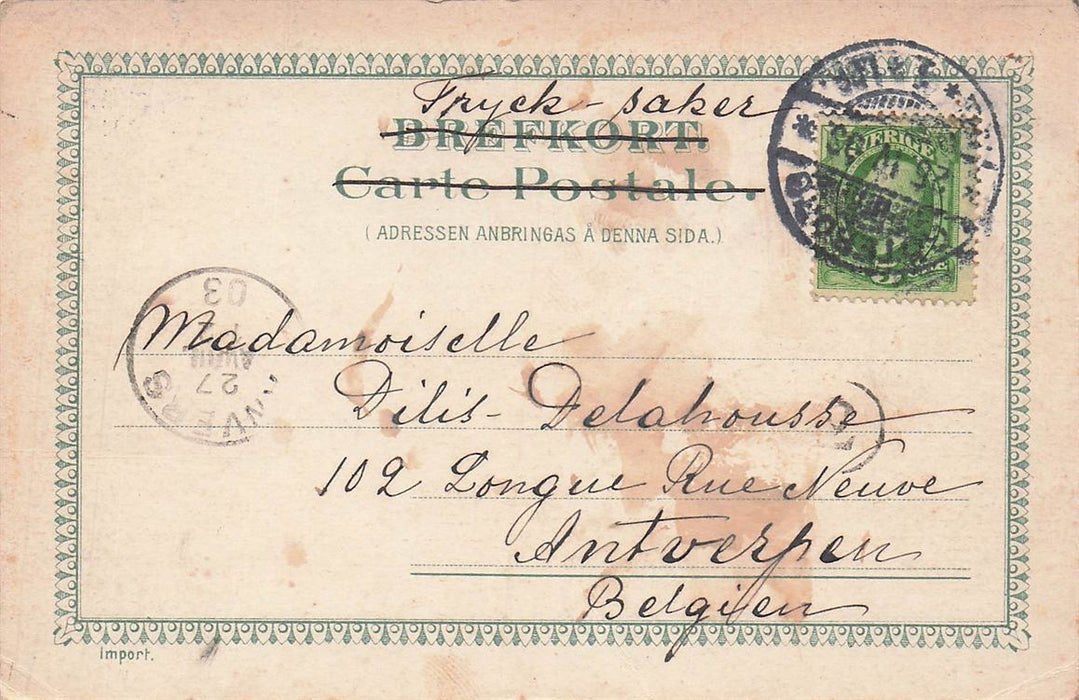 Tryck-saker
BREFKORT.
Carte Postale.
(ADRESSEN ANBRINGAS Å DENNA SIDA.)
SVERIGE
03
27
ANVERS
Madamoiselle
Dilis-Delahousse
102 Longue Rue Neuve
Antverpen
Belgien
Import.